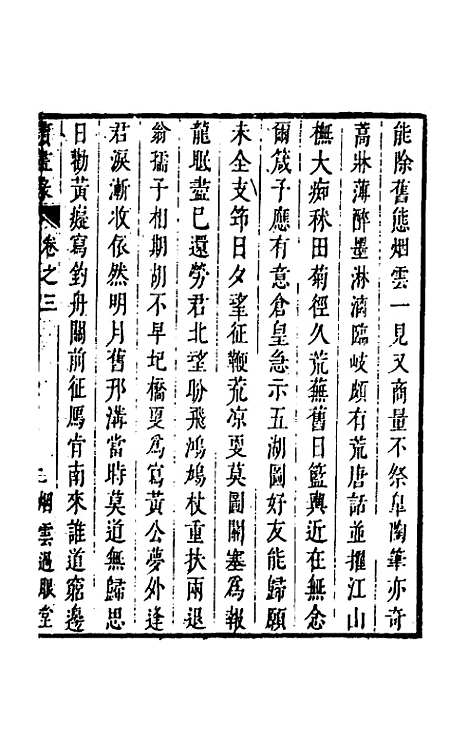 能除舊態烟雲一見又商量不祭皐陶筆亦奇
蒿牀薄醉墨淋漓臨岐頗有荒唐話並攞江山
橅大痴秫田菊徑久荒蕪舊日籃輿近在無念
爾箴子應有意倉皇急示五湖圖好友能歸願
未全支笻日夕望征鞭荒凉更莫圖關塞為報
龍眠盡已還勞君北望盼飛鴻鳩杖重扶兩退
翁孺子相期胡不早圯橋更為寫黃公夢外逢
君淚漸收依然明月舊邗溝當時莫道無歸思
日勸黃癡寫釣舟關前征鴈肯南來誰道窮邊
畫錄 卷之三 烟雲過眼堂